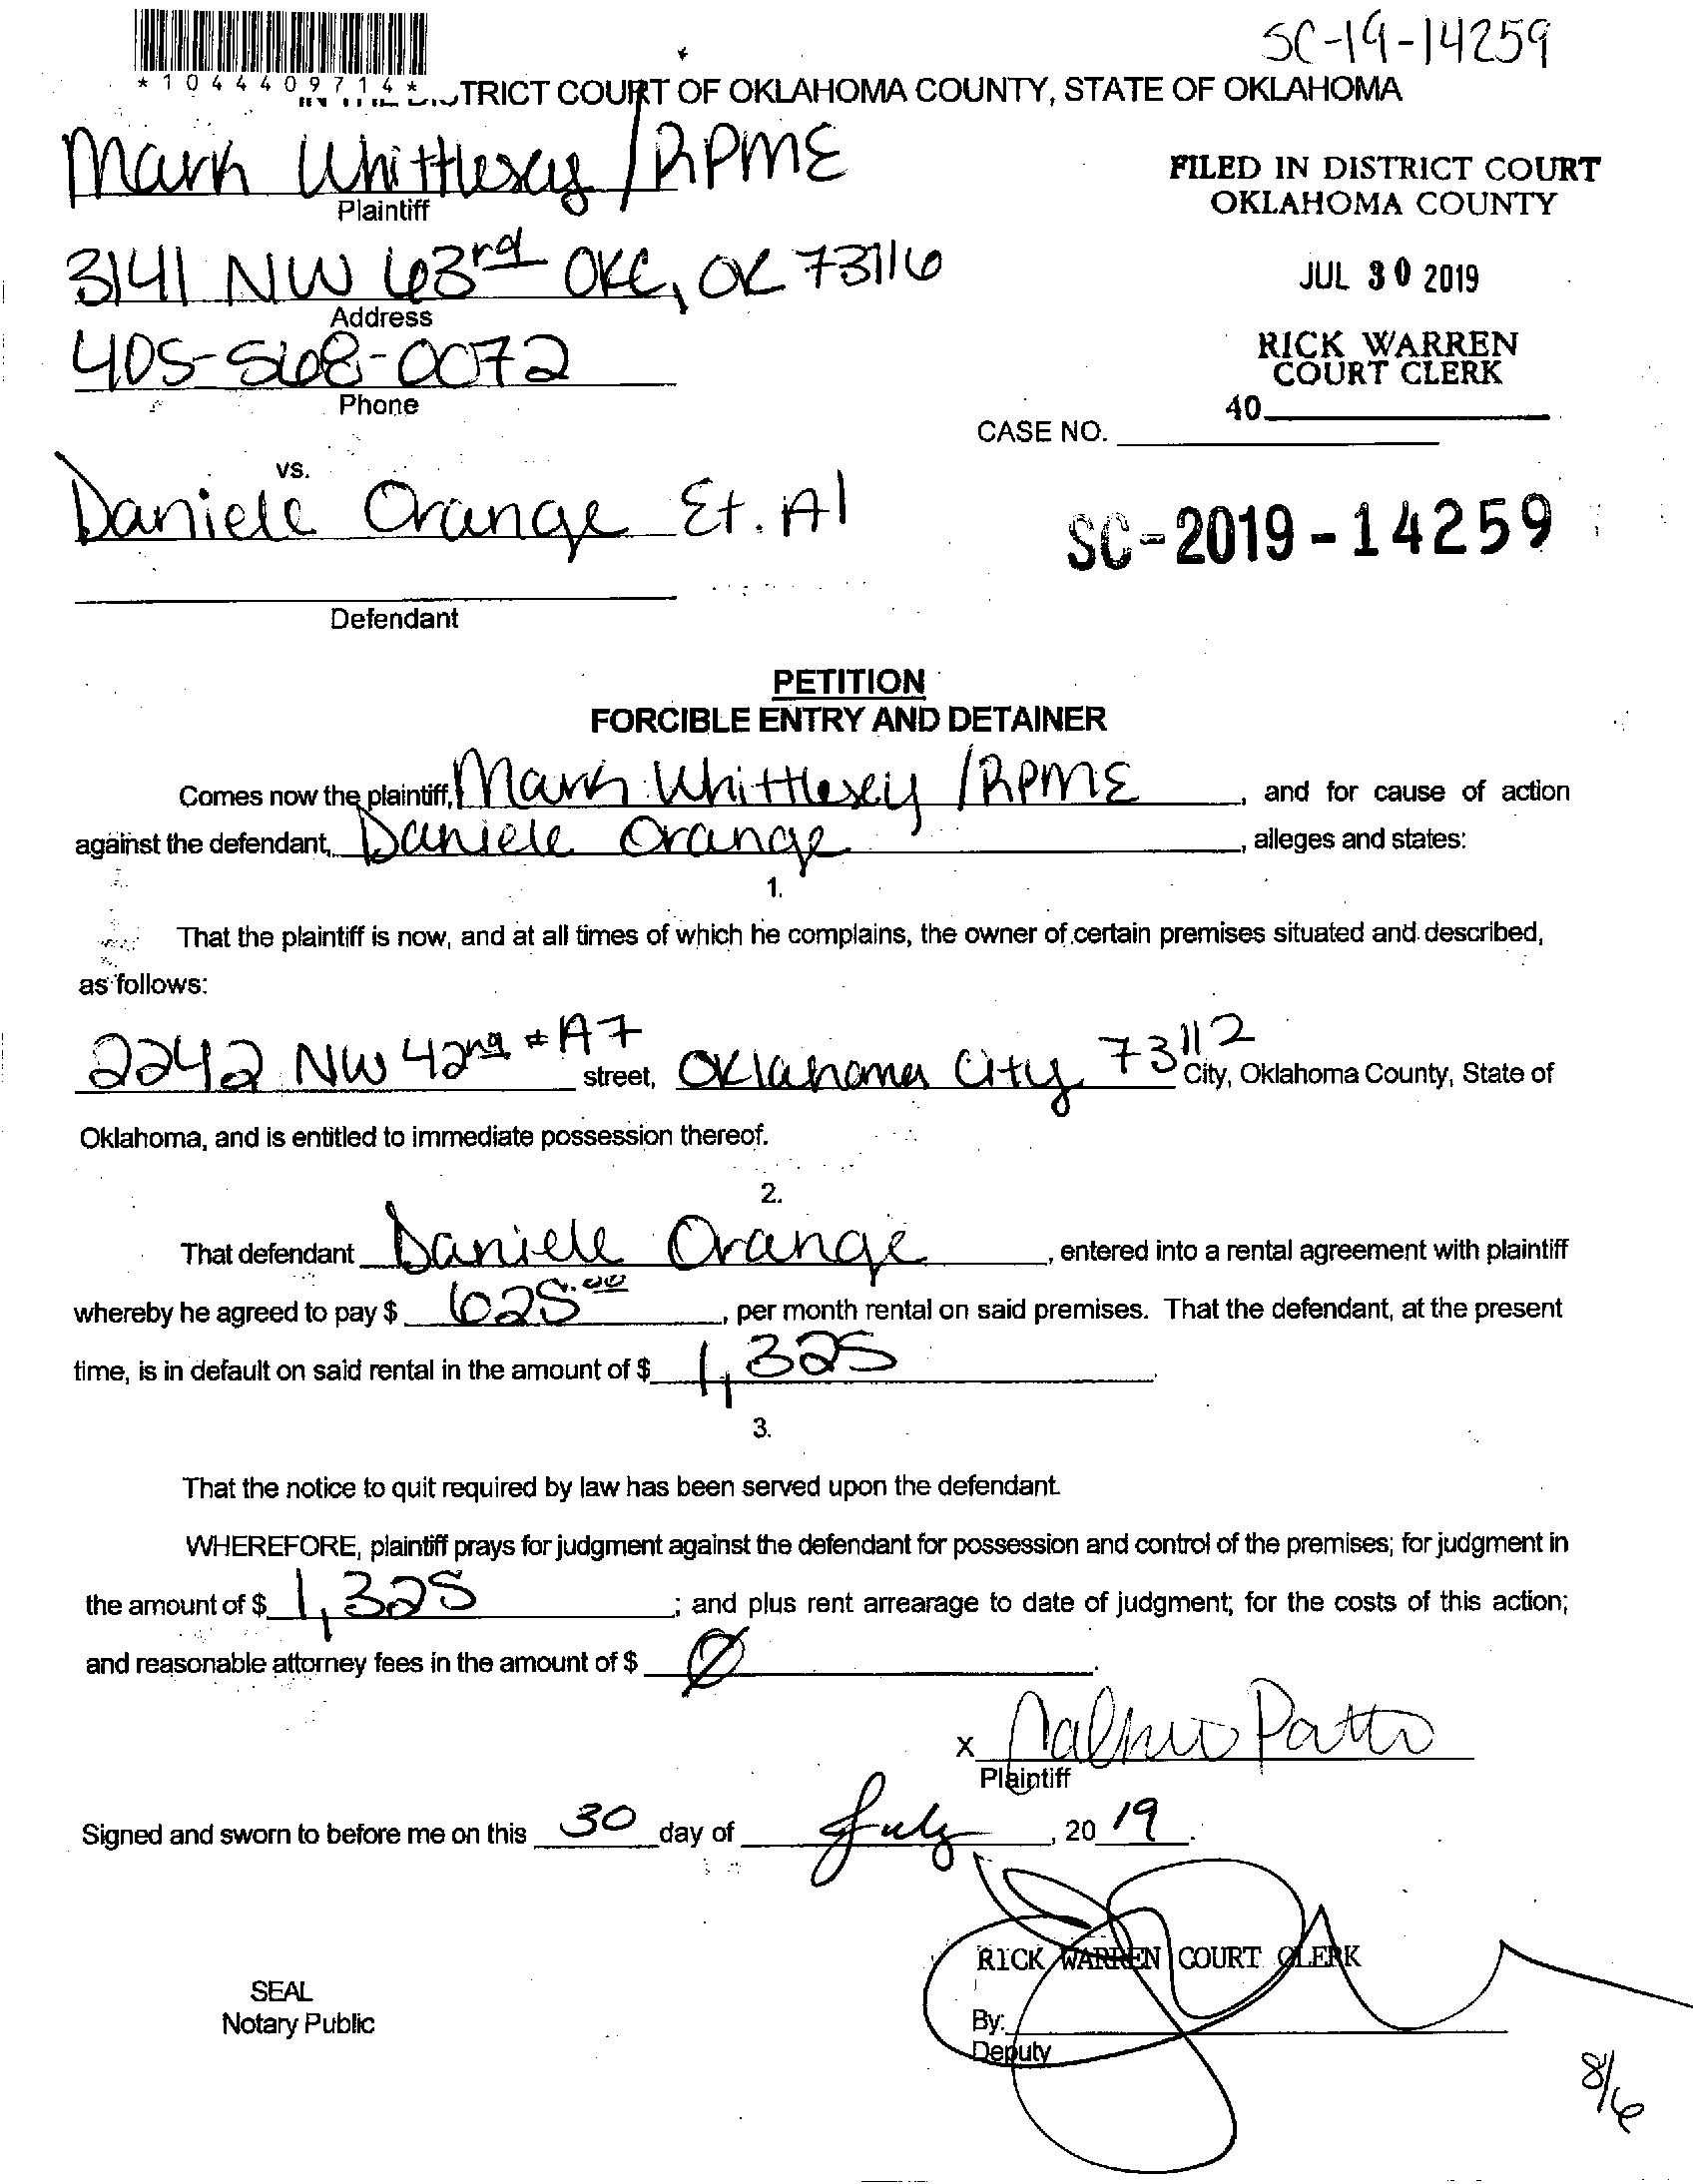 SC-19-14259
*1044409714*
TRICT COURT OF OKLAHOMA COUNTY, STATE OF OKLAHOMA
Mark Whittlesey / RPME
Plaintiff
FILED IN DISTRICT COURT
OKLAHOMA COUNTY
3141 NW 63rd OKC, OK 73116
Address
JUL 30 2019
405-568-0072
Phone
RICK WARREN
COURT CLERK
40
CASE NO.
vs.
Daniele Orange Et. Al
SC-2019-14259
Defendant
PETITION
FORCIBLE ENTRY AND DETAINER
Comes now the plaintiff, Mark Whittlesey / RPME, and for cause of action
against the defendant, Daniele Orange, alleges and states:
1.
That the plaintiff is now, and at all times of which he complains, the owner of certain premises situated and described,
as follows:
2242 NW 42nd #A7 street, Oklahoma City 73112 City, Oklahoma County, State of
Oklahoma, and is entitled to immediate possession thereof.
2.
That defendant Daniele Orange, entered into a rental agreement with plaintiff
whereby he agreed to pay $ 625.00, per month rental on said premises. That the defendant, at the present
time, is in default on said rental in the amount of $ 1,325.
3.
That the notice to quit required by law has been served upon the defendant.
WHEREFORE, plaintiff prays for judgment against the defendant for possession and control of the premises; for judgment in
the amount of $ 1,325; and plus rent arrearage to date of judgment; for the costs of this action;
and reasonable attorney fees in the amount of $ Ø.
x
Plaintiff
Signed and sworn to before me on this 30 day of July, 2019.
RICK WARREN COURT CLERK
SEAL
Notary Public
By:
Deputy
8/6